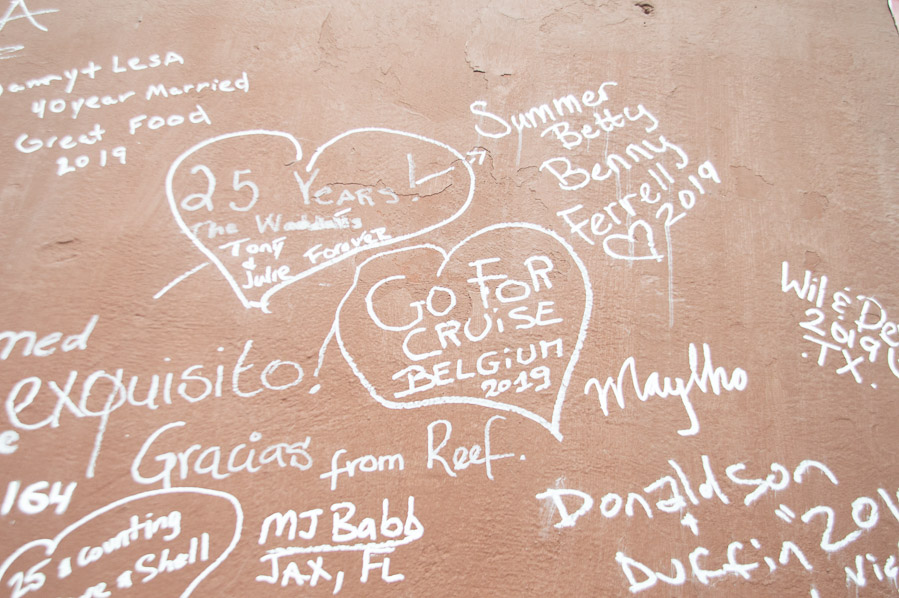 A
Danny + LesA
40 year Married
Great Food
2019
25 Years!
The
Tony
& Julie Forever
Summer
Betty
Benny
Ferrelly
2019
Go For
CRUiSE
BELGiUM
2019
Wil &
2019
TX.
med
exquisito!
Gracias from Reef.
Maylho
164
25 & counting
a Shell
MJ Babb
JAX, FL
Donaldson
+
Duffin